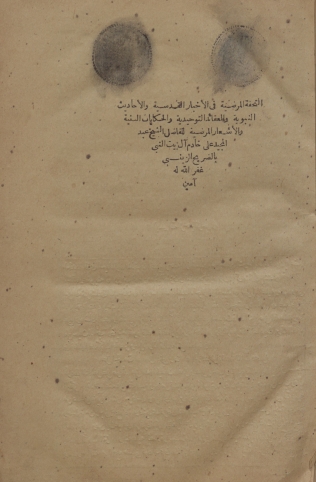 التحفة المرضية فى الأخبار القدسية والأحاديث
النبوية والعقائد التوحيدية والحكايات السنية
والأشعار المرضية للفاضل الشيخ عبد
المجيد على خادم آل بيت النبي
بالضريح الزينبي
غفر الله له
آمين